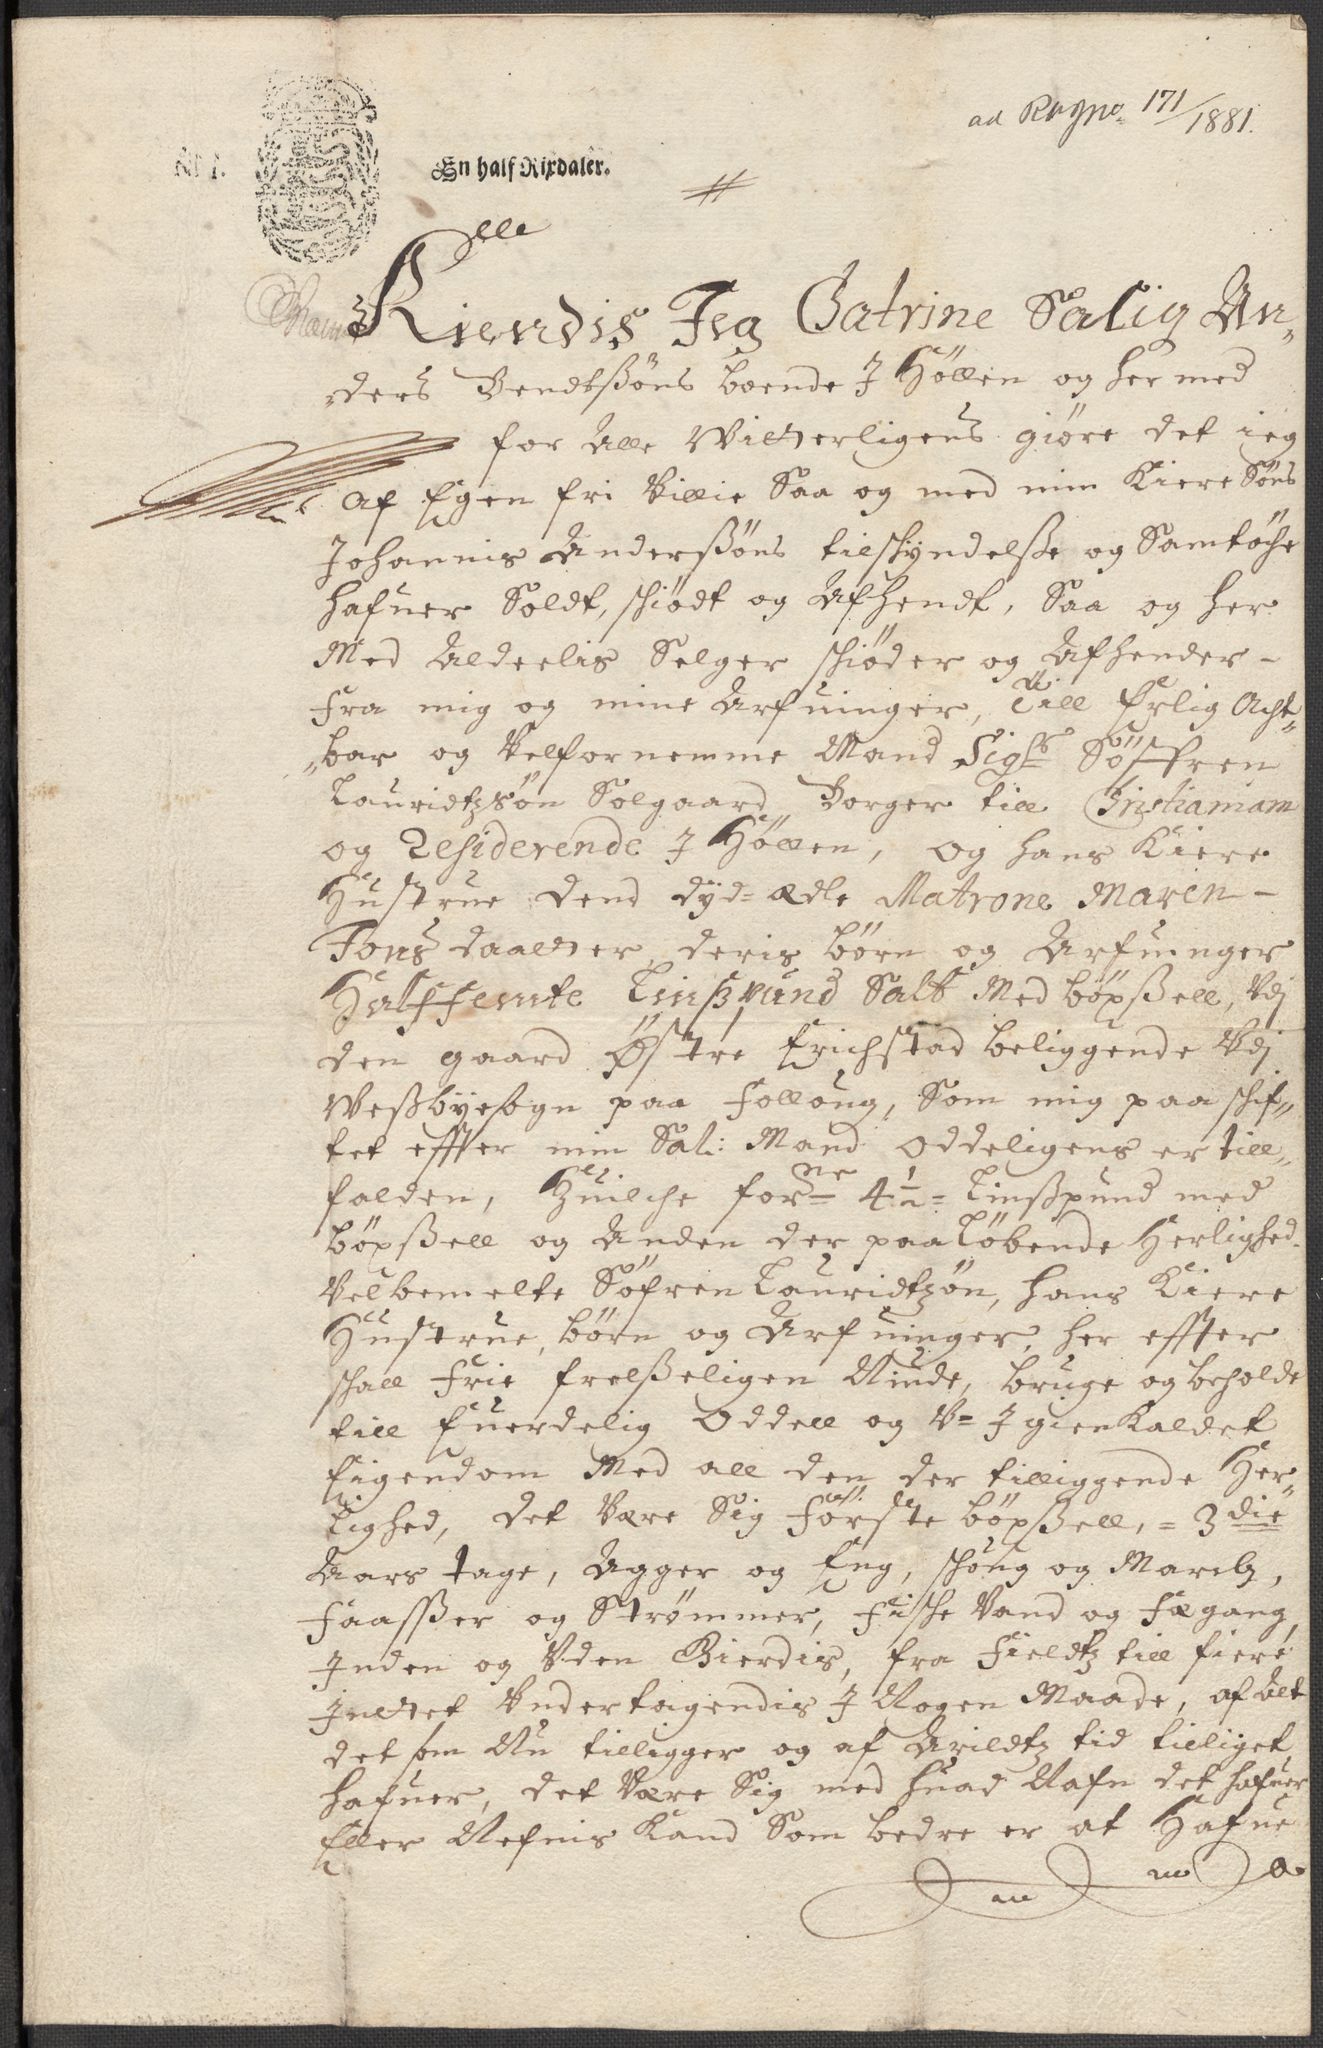 ad Regno. 171/1881.
No 1.
En half Rixdaler.
Kiendis Jeg Catrine Salig An„
„ders Bendtßøns boende J Höllen og her med
for Alle Witterligens giöre det ieg
af Egen fri Villie Saa og med min Kiere Søns
Johannis Anderßøns tilskyndelße og Samtöche
hafuer Soldt, skiødt og Afhendt, Saa og her
Med Aldeelis Selger skiøder og Afhender -
fra mig og mine Arfuinger, Till Erlig Acht„
„bar og Velfornemme Mand Sigr Söffren
Lauridtzsøn Solgaard Borger till Cristianiam
og Residerende J Höllen, og hans Kiere
Hustrue dend dyd=ædle Matrone Maren -
Jons daatter, deris börn og Arfuinger
Halffemte Lißpund Salt Med böxßell, Vdj
den gaard Østre Erichstad beliggende Vdj
Weßbyesogn paa Folloug, Som mig paa schif„
tet effter min Sal: Mand Oddeligens er till„
falden, Huilche forne 4½= Linßpund med
böxßell og Anden der paa Löbende Herlighed
Velbemelte Söfren Lauridtzøn, hans Kiere
Hustrue, börn og Arfuinger, her effter
schall Frie frelßeligen Niude, bruge og beholde
till Euerdelig Oddell og V= J gienkaldet
Eigendom Med all den der tilliggende Her„
lighed, det Være Sig förste böxßell, = 3die
Aars tage, Agger og Eng, schoug og March,
Faaßer og Strømmer, Fische Vand og Fægang,
Jnden og Vden Gierdis, fra Fieldtz till fiere
Jntet Vndertagendis J Nogen Maade, af Alt
det som Nu tilligger og af Arildtz tid tilliget
hafuer, det Være Sig med huad Nafn det hafuer
Eller Nefnis Kand Som bedre er at Hafue